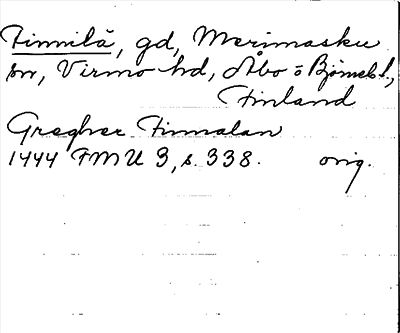 Finnilä, gd, Merimasku
sn, Virmo hd, Åbo o Björneb. l.,
Finland
Gregher Finnalan
1444 FMU 3, s. 338. orig.